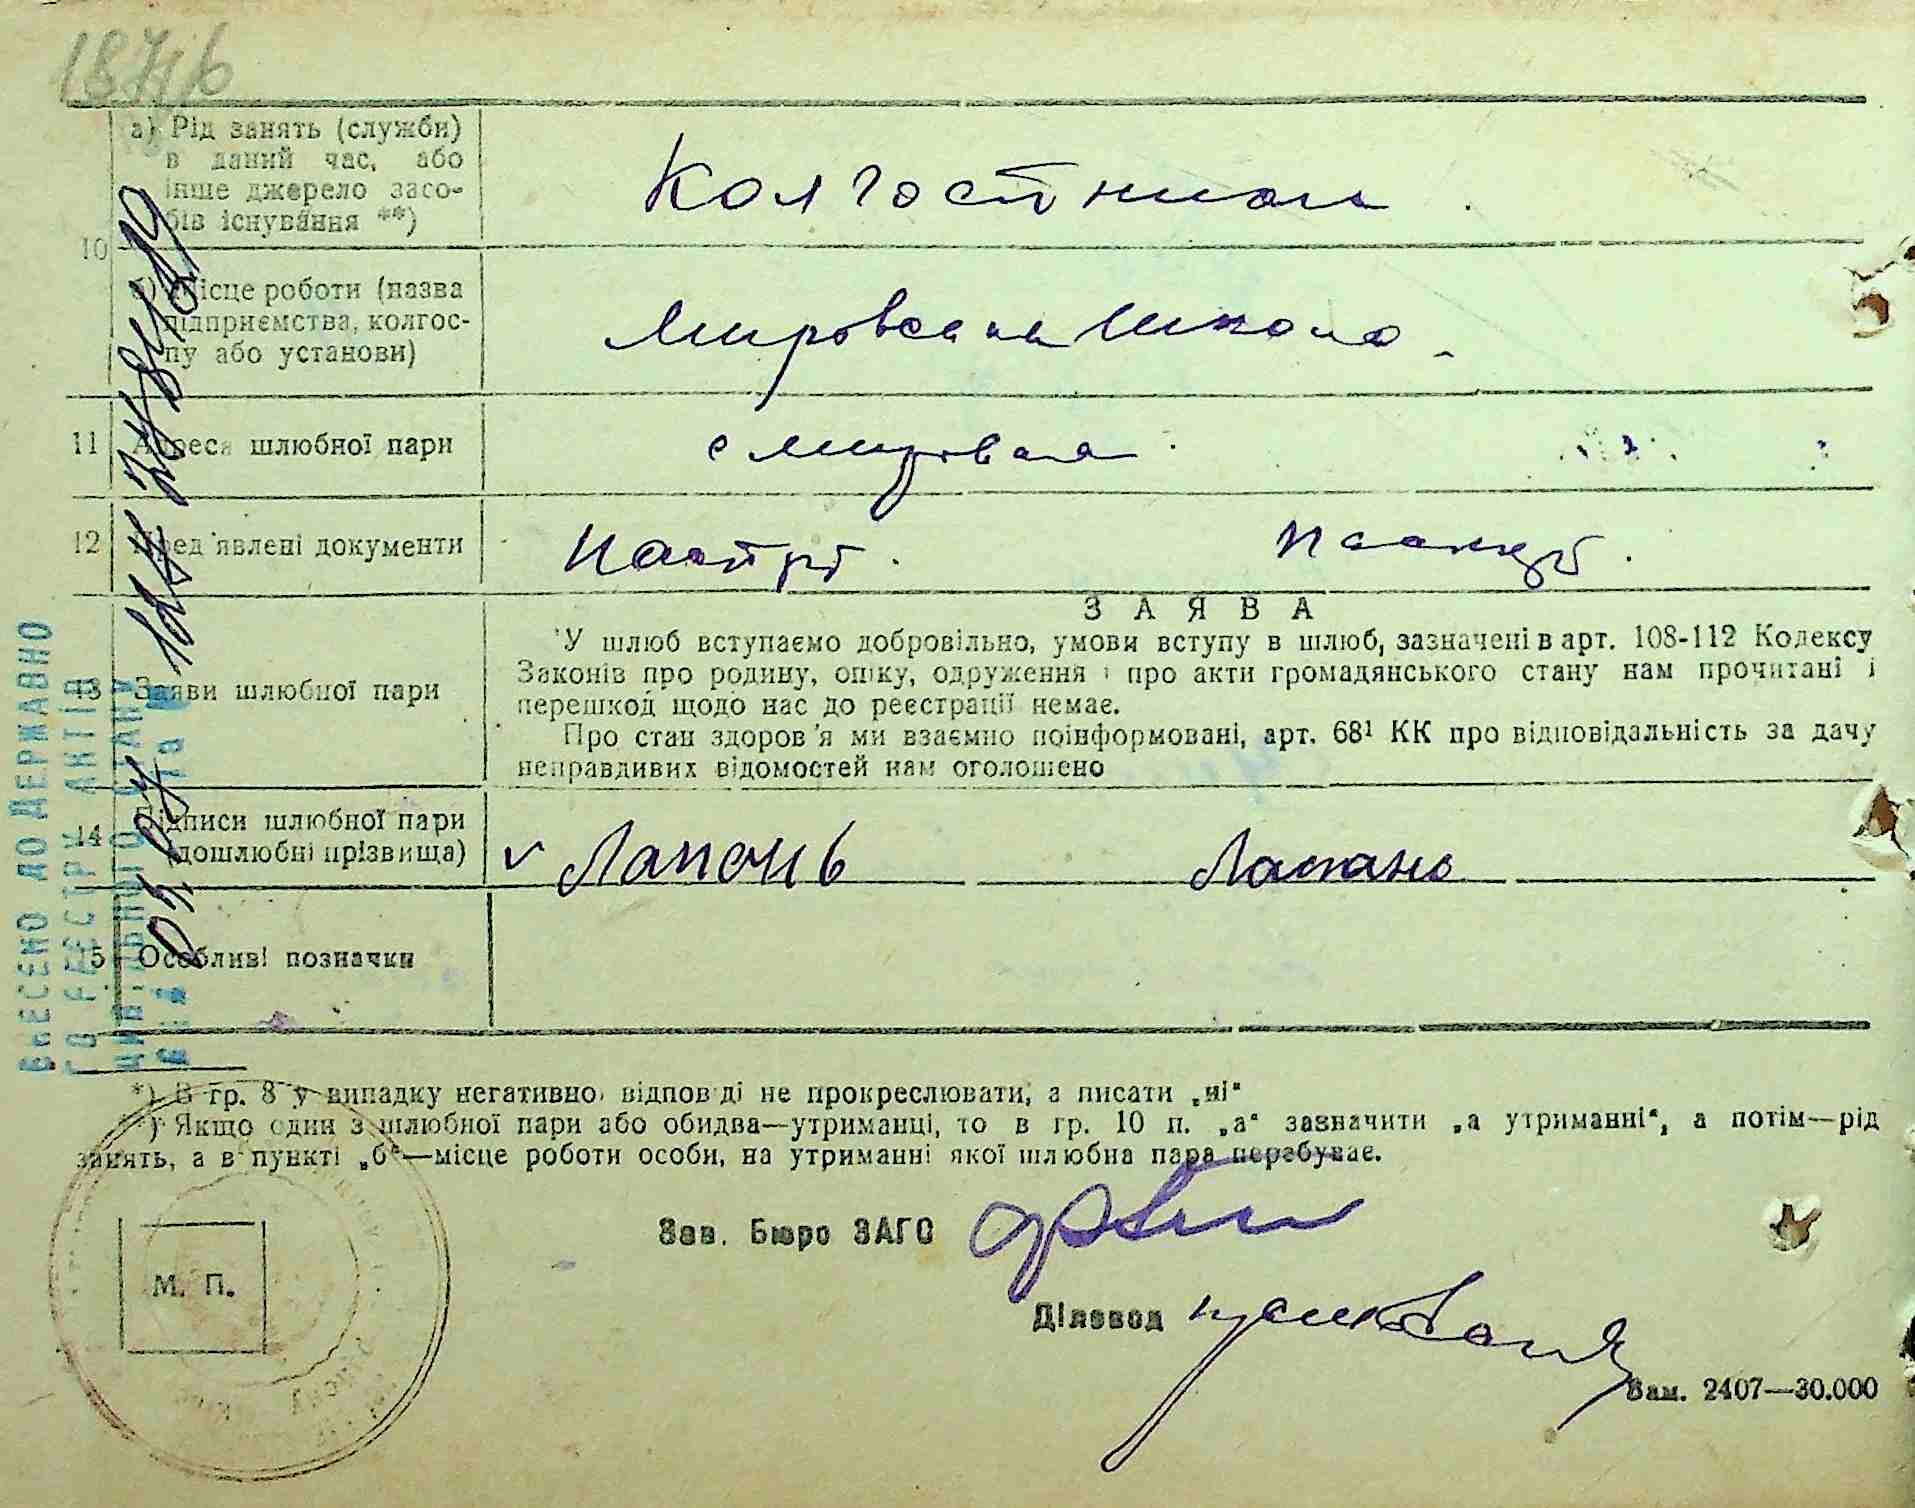 а) Рід занять (служби)
в даний час, або
інше джерело засо-
бів існування **)
10
Колгоспник
б) Місце роботи (назва
підприємства, колгос-
пу або установи)
Мировская школа
11 Адреса шлюбної пари
с Мировка
12 Пред'явлені документи
паспорт паспорт
ЗАЯВА
У шлюб вступаємо добровільно, умови вступу в шлюб, зазначені в арт. 108-112 Кодексу
Законів про родину, опіку, одруження і про акти громадянського стану нам прочитані і
перешкод щодо нас до реєстрації немає.
Про стан здоров'я ми взаємно поінформовані, арт. 68¹ КК про відповідальність за дачу
неправдивих відомостей нам оголошено
13 Заяви шлюбної пари
14 Підписи шлюбної пари
(дошлюбні прізвища)
Лапонь
15 Особливі позначки
ВНЕСЕНО ДО ДЕРЖАВНО
ГО РЕЄСТРУ АКТІВ
ЦИВІЛЬНОГО СТАНУ
*) В гр. 8 у випадку негативної відповіді не прокреслювати, а писати „ні“
**) Якщо один з шлюбної пари або обидва—утриманці, то в гр. 10 п. „а“ зазначити „а утриманні“, а потім—рід
занять, а в пункті „б“—місце роботи особи, на утриманні якої шлюбна пара перебуває.
Зав. Бюро ЗАГС
М. П.
Діловод
Зам. 2407—30.000